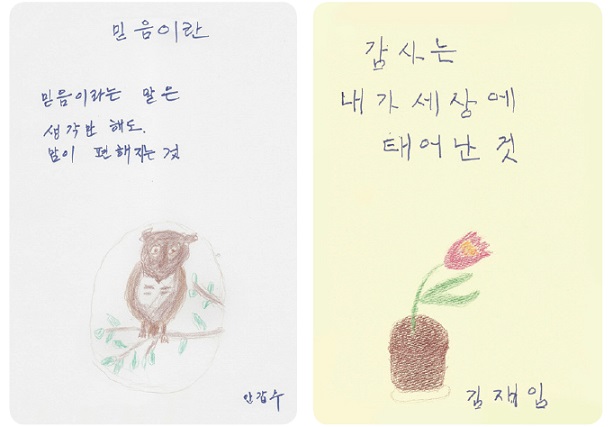 믿음이란
믿음이라는 말은
생각만 해도.
맘이 편해지는 것
안갑수
감사는
내가 세상에
태어난 것
김재임